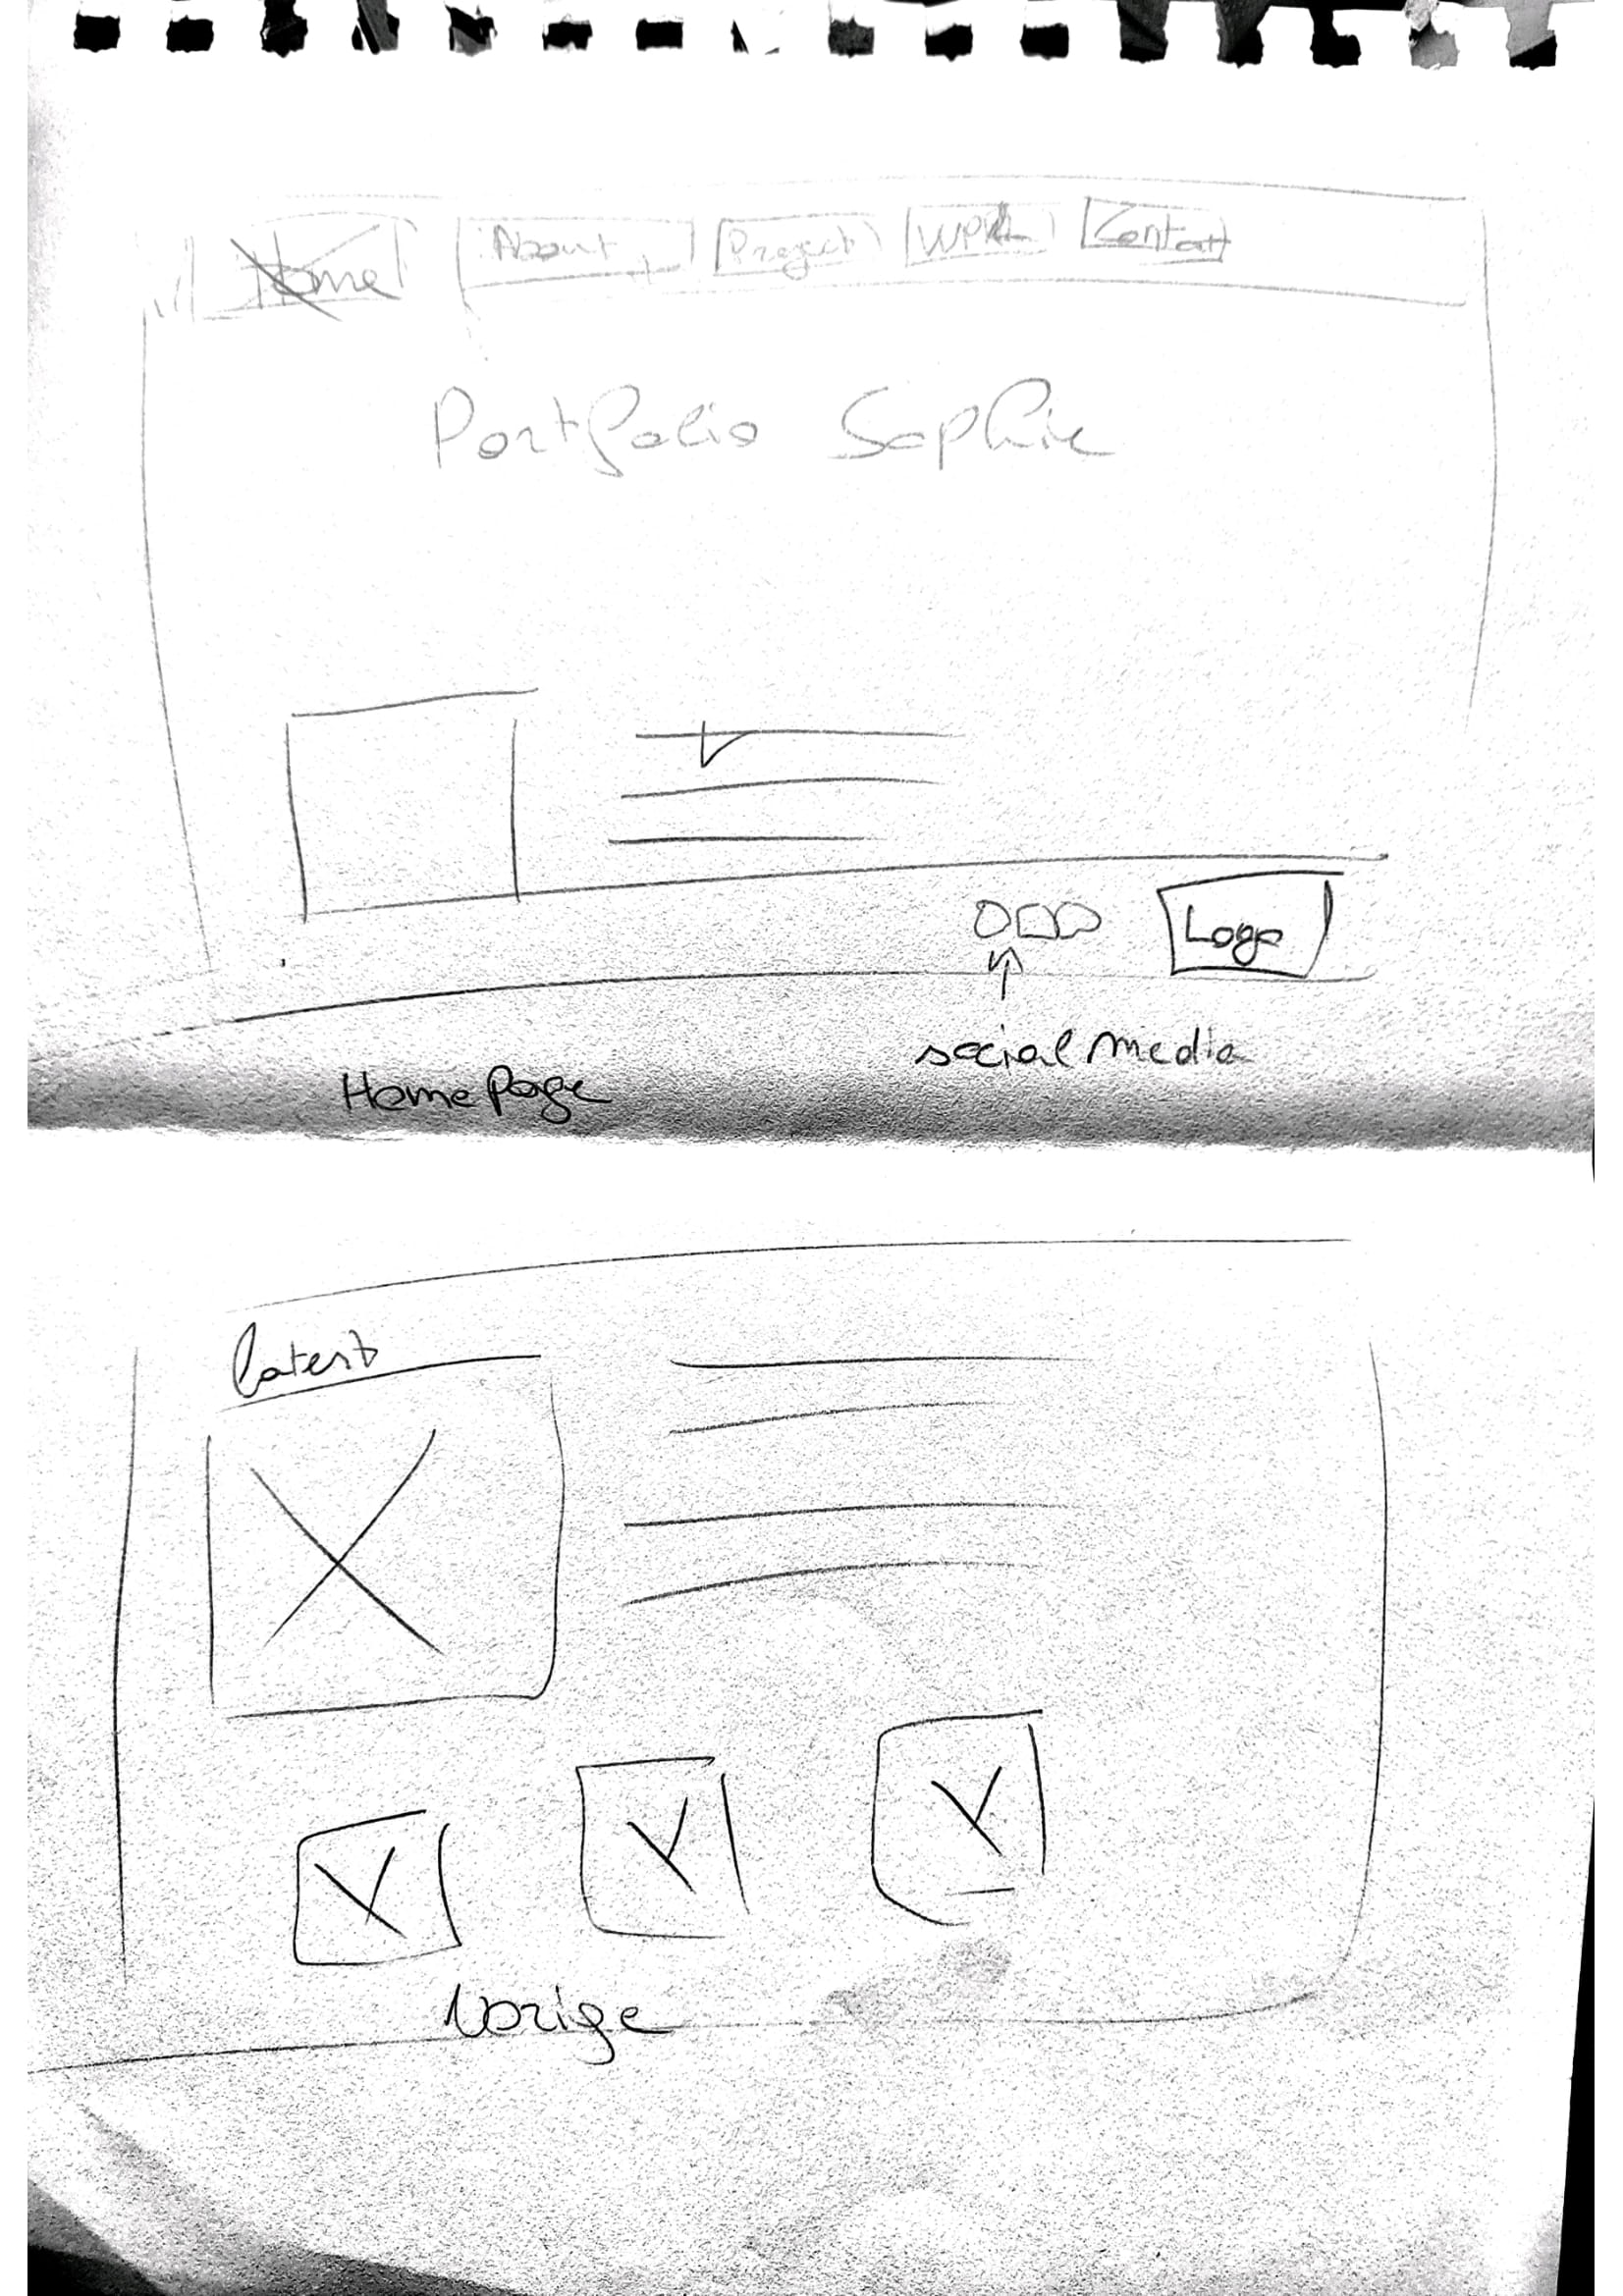 Home About Project Work Contact
Portfolio Sophie
Logo
social media
Home Page
latest
Vorige